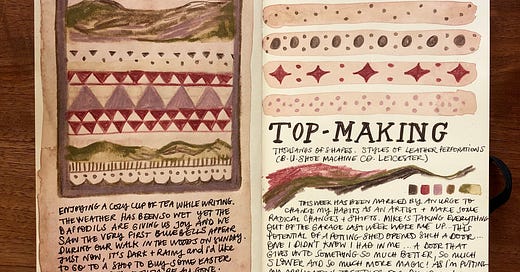 ENJOYING A COZY CUP OF TEA WHILE WRITING.
THE WEATHER HAS BEEN SO WET YET THE
DAFFODILS ARE GIVING US JOY AND WE
SAW THE VERY FIRST BLUEBELLS APPEAR
DURING OUR WALK IN THE WOODS ON SUNDAY.
JUST NOW, IT'S DARK + RAINY, AND I'D LIKE
TO GO TO A SHOP TO BUY SOME EASTER
TOP-MAKING
THOUSANDS OF SHAPES. STYLES OF LEATHER PERFORATIONS
(B.U. SHOE MACHINE CO. LEICESTER)
THIS WEEK HAS BEEN MARKED BY AN URGE TO
CHANGE MY HABITS AS AN ARTIST + MAKE SOME
RADICAL CHANGES + SHIFTS. MIKE'S TAKING EVERYTHING
OUT OF THE GARAGE LAST WEEK WOKE ME UP. THIS
POTENTIAL OF A POTTING-SHED OPENED SUCH A DOOR ...
ONE I DIDN'T KNOW I HAD IN ME... A DOOR THAT
GIVES ONTO SOMETHING SO MUCH BETTER, SO MUCH
SLOWER AND SO MUCH MORE MAGIC. AS I'M PUTTING